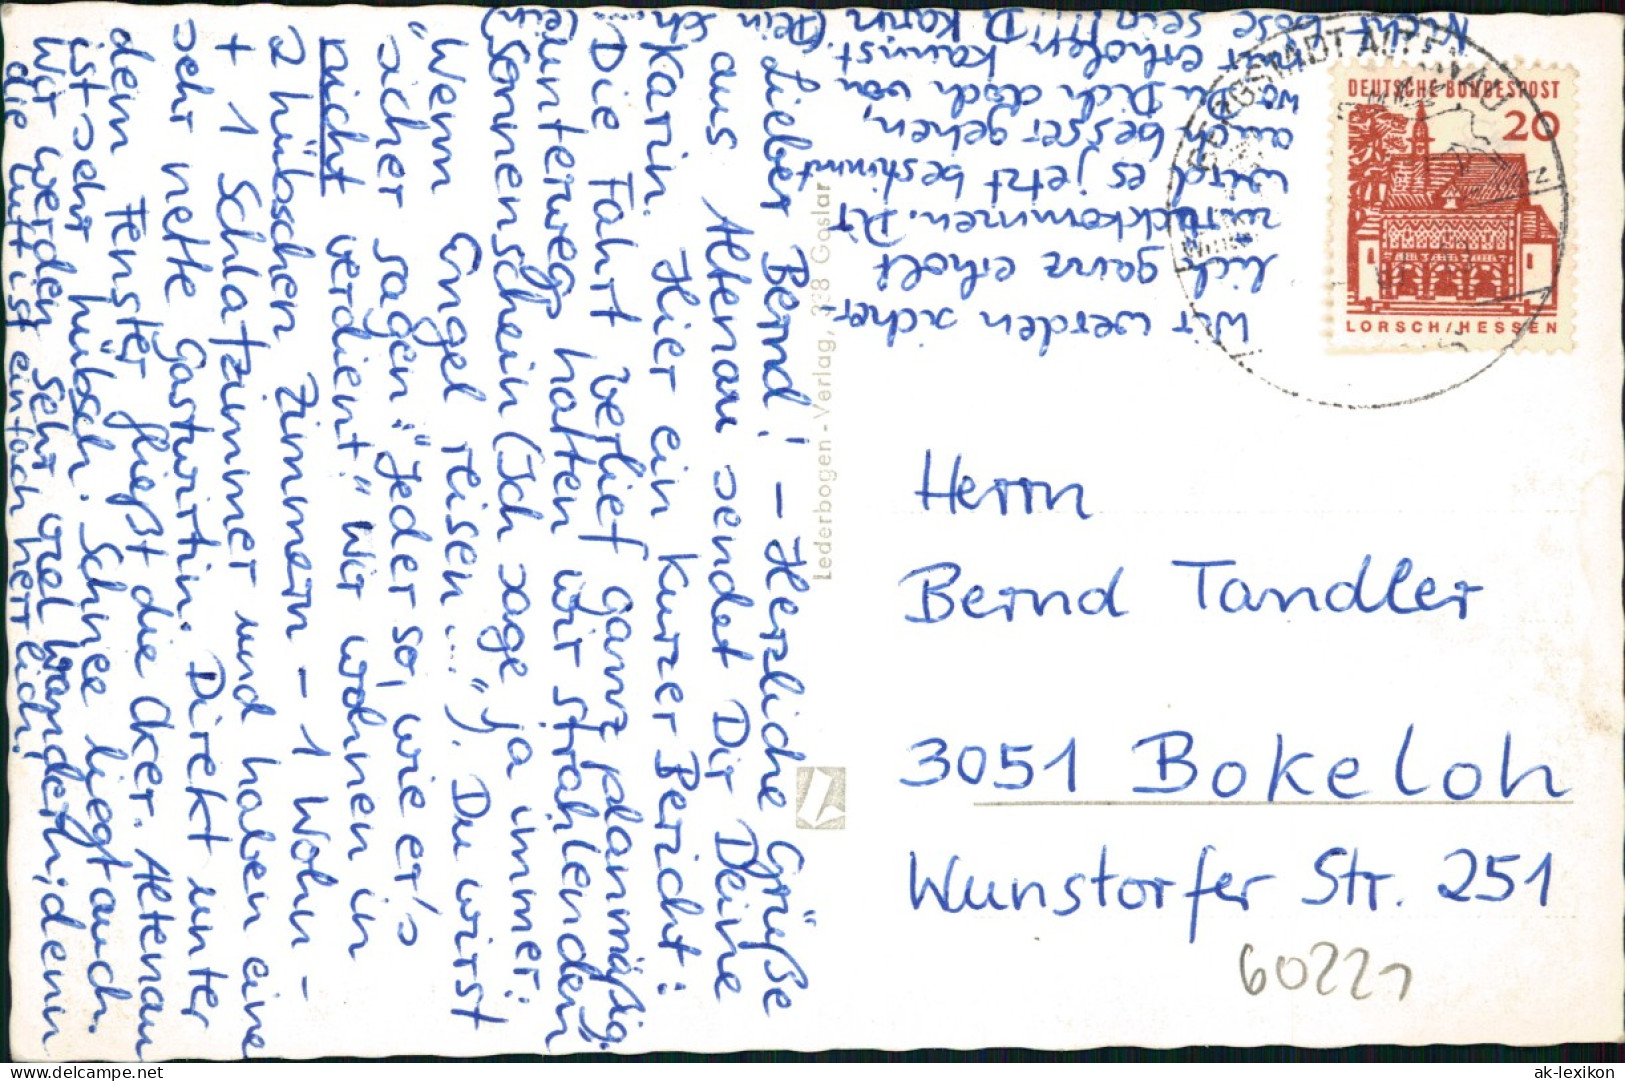 Lieber Bernd! – Herzliche Grüße
aus Altenau sendet Dir Deine
Karin. Hier ein kurzer Bericht:
Die Fahrt verlief ganz planmäßig.
Unterwegs hatten wir strahlenden
Sonnenschein (Ich sage ja immer:
"Wenn Engel reisen...."). Du wirst
sicher sagen: "Jeder so, wie er's
nicht verdient." Wir wohnen in
2 hübschen Zimmern – 1 Wohn –
+ 1 Schlafzimmer und haben eine
sehr nette Gastwirtin. Direkt unter
dem Fenster fließt die Oker. Altenau
ist sehr hübsch. Schnee liegt auch.
Wir werden sehr viel wandern; denn
die Luft ist einfach herrlich!
Wir werden sicher-
lich ganz erholt
zurückkommen. Dir
wird es jetzt bestimmt
auch besser gehen,
wo Du Dich doch von
mir erholen kannst.
Nicht böse sein!!! D. Karin
Lederbogen-Verlag, 338 Goslar
BERGSTADT ALTENAU
DEUTSCHE BUNDESPOST
20
LORSCH/HESSEN
Herrn
Bernd Tandler
3051 Bokeloh
Wunstorfer Str. 251
60221
delcampe.net
ak-lexikon